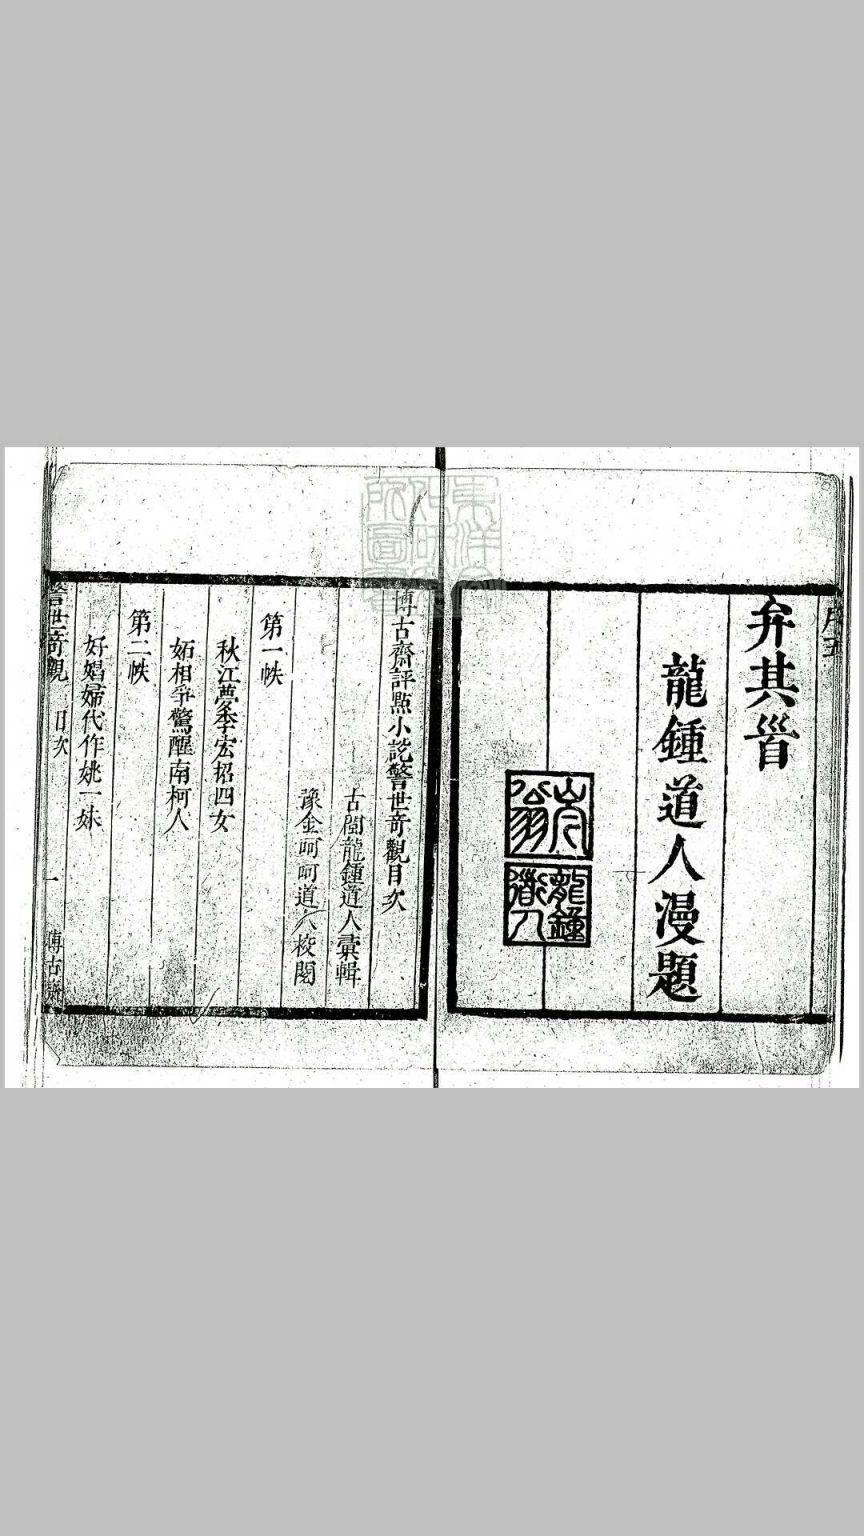 序五
弁其首
龍鍾道人漫題
龍鍾道人
博古齋評點小説警世奇觀目次
古閩龍鍾道人彙輯
豫金呵呵道人校閲
第一帙
秋江夢李宏招四女
妬相爭驚醒南柯人
第二帙
好娼婦代作姚一妹
警世奇觀 目次 一 博古齋